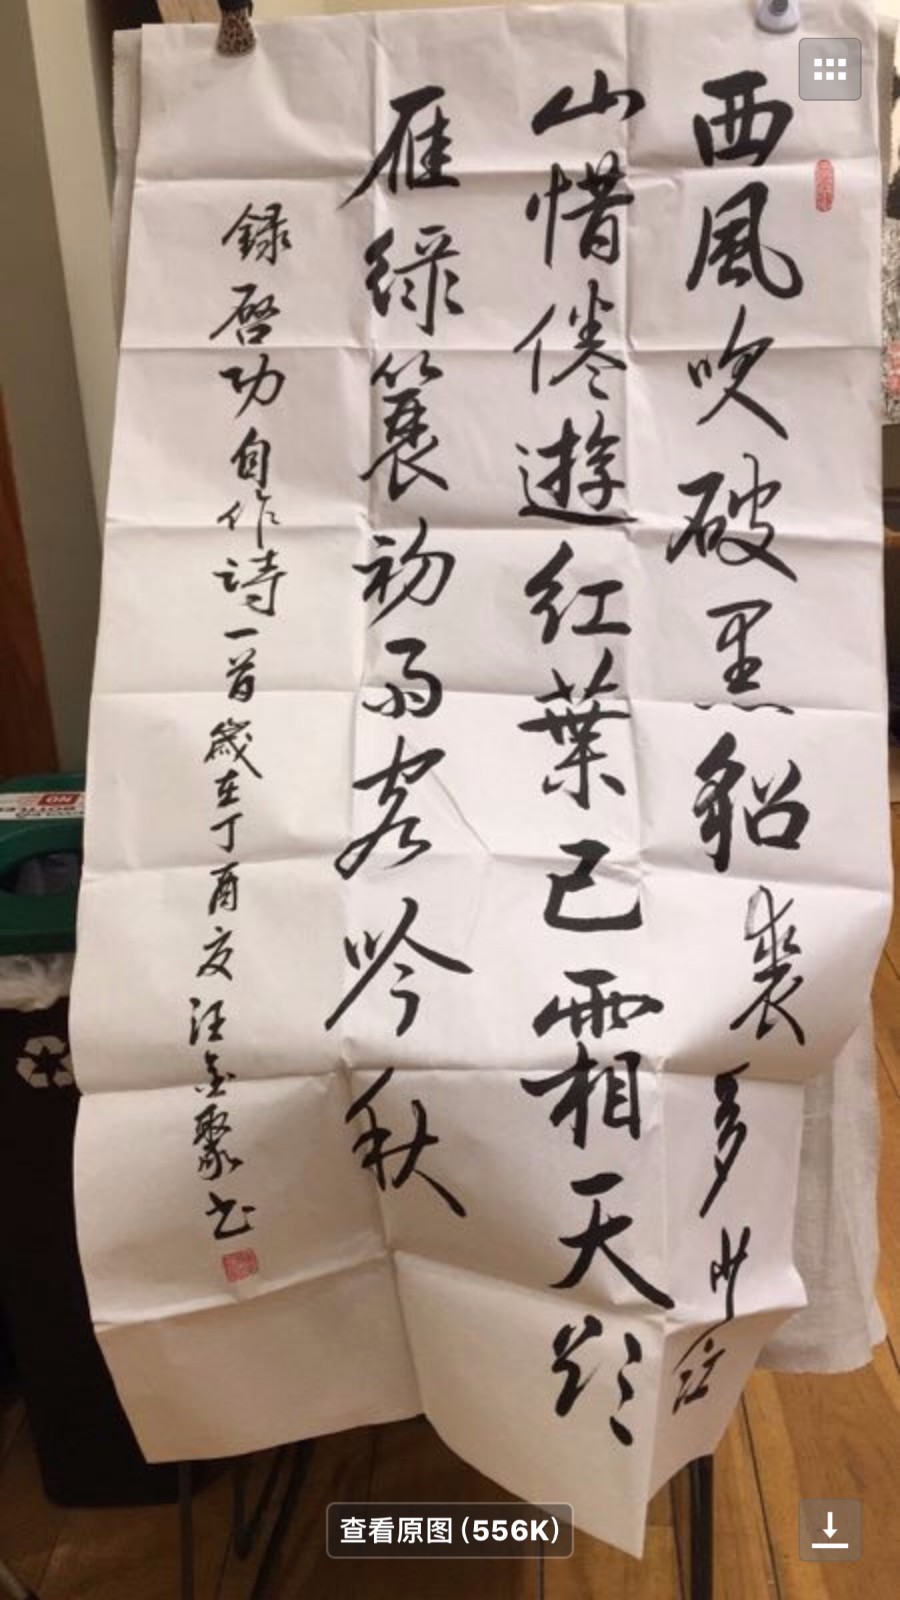 西風吹破黑貂裘多少江
山惜倦遊紅葉已霜相天欲
雁綠簑初雨客吟秋
錄啓功自作詩一首歲在丁酉夏汪金聚书
查看原图(556K)